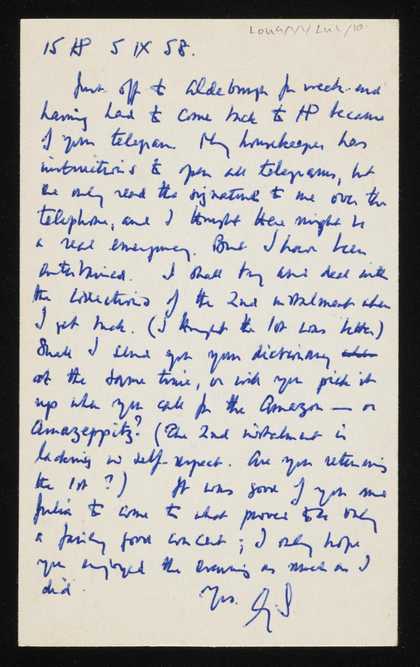 15 HP 5 IX 58.
Just off to Aldeburgh for week-end
having had to come back to HP because
of your telegram. My housekeeper has
instructions to open all telegrams, but
she only read the signature to me over the
telephone, and I thought there might be
a real emergency. But I have been
entertained. I shall try and deal with
the corrections of the 2nd instalment when
I get back. (I thought the 1st was better)
Shall I send you your dictionary
at the same time, or will you pick it
up when you call for the Amazon — or
Amazeppitz? (The 2nd instalment is
lacking in self-respect. Are you returning
the 1st?) It was good of you and
Julia to come to what proved to be only
a fairly good concert; I only hope
you enjoyed the evening as much as I
did. Yrs.